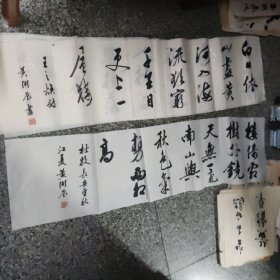 白日依
山盡黄
河入海
流欲窮
千里目
更上一
層樓
王之渙詩
樓倚霜
樹外鏡
天無一毫
南山與
秋色氣
勢兩相
高
杜牧長安秋
江夏黄